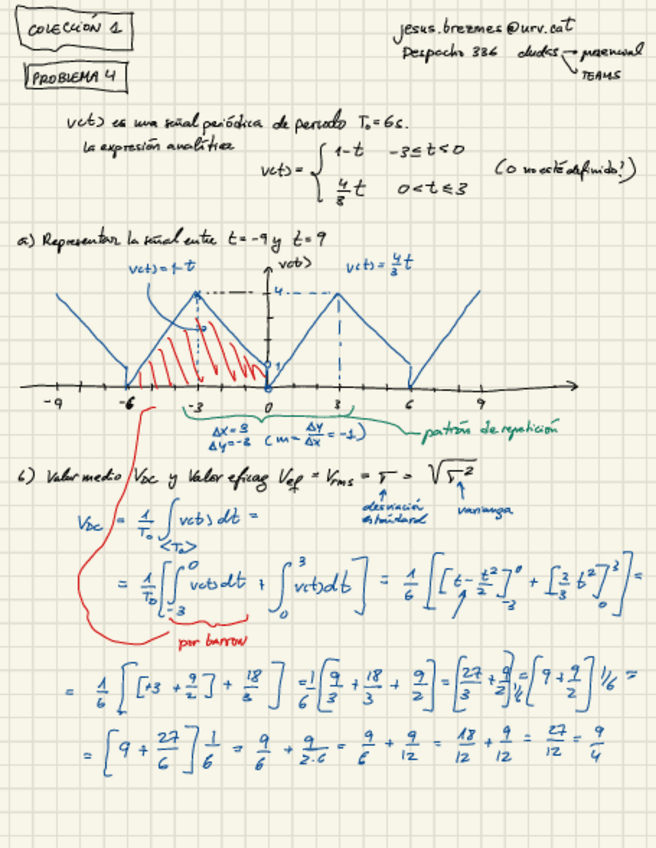 COLECCIÓN 1
jesus.brezmes@urv.cat
Despacho 336 dudas → presencial
↘ TEAMS
PROBLEMA 4
v(t) es una señal periódica de periodo T₀ = 6s.
La expresión analítica
v(t) = { 1-t -3 ≤ t < 0
4/3 t 0 < t ≤ 3
(0 no esté definido?)
a) Representar la señal entre t = -9 y t = 9
v(t) = 1-t
v(t)
v(t) = 4/3 t
4
1
-9 -6 -3 0 3 6 9
Δx = 3
Δy = -3 (m = Δy/Δx = -1)
patrón de repetición
b) Valor medio V_DC y Valor eficaz V_ef = V_rms = σ = √σ²
desviación estándard
varianza
V_DC = 1/T₀ ∫_<T₀> v(t) dt =
= 1/T₀ [ ∫_-3^0 v(t) dt + ∫_0^3 v(t) dt ] = 1/6 [ [t - t²/2]_-3^0 + [2/3 t²]_0^3 ] =
por barrow
= 1/6 [ [+3 + 9/2] + 18/3 ] = 1/6 [ 9/3 + 18/3 + 9/2 ] = [ 27/3 + 9/2 ] 1/6 = [ 9 + 9/2 ] 1/6 =
= [ 9 + 27/6 ] 1/6 = 9/6 + 9/2·6 = 9/6 + 9/12 = 18/12 + 9/12 = 27/12 = 9/4